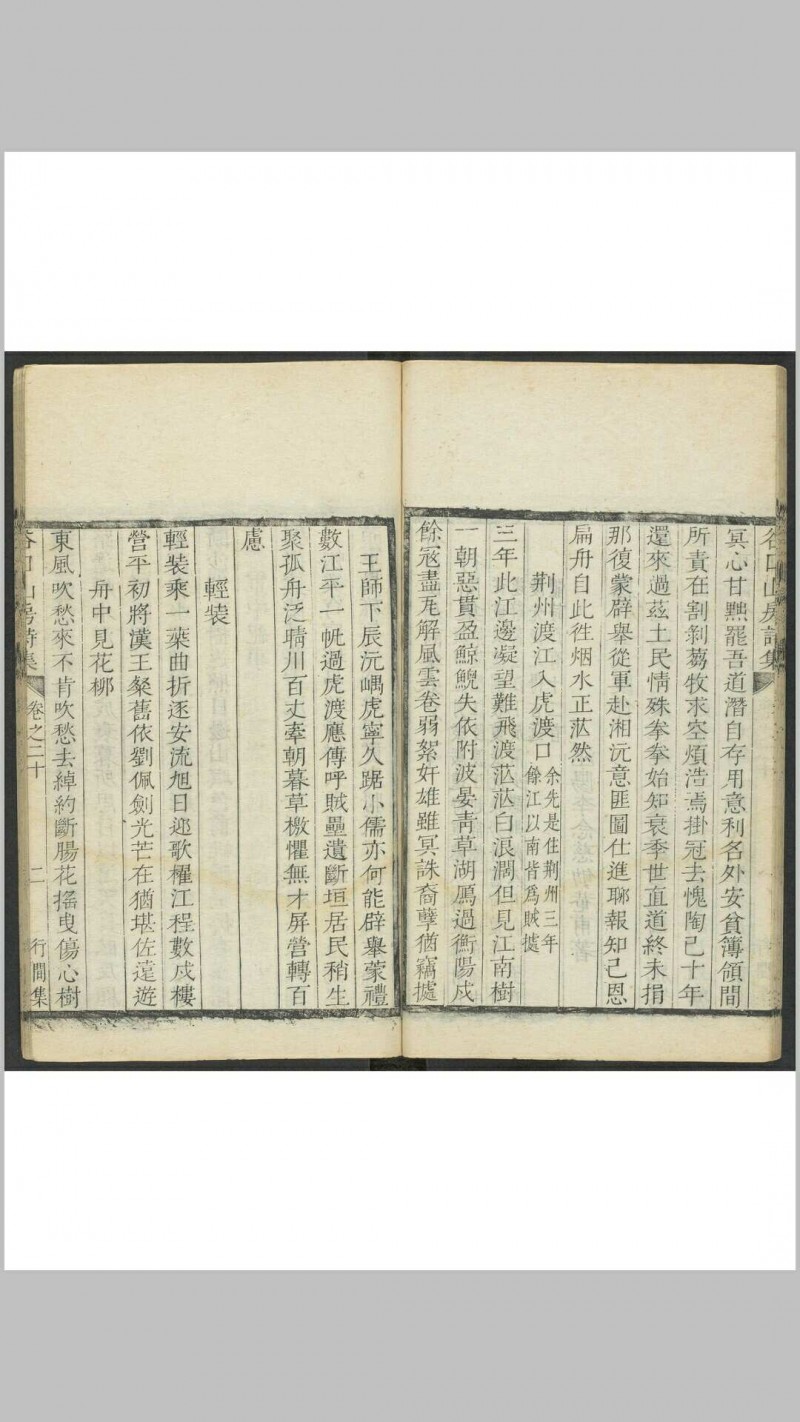 谷口山房詩集
冥心甘黙罷吾道潛自存用意利名外安貧簿領間
所責在割剝芻牧求空煩浩焉掛冠去愧陶已十年
還來過茲土民情殊拳拳始知衰季世直道終未捐
那復蒙辟舉從軍赴湘沅意匪圖仕進聊報知己恩
扁舟自此徃烟水正茫然
荆州渡江入虎渡口余先是住荆州三年
餘江以南皆爲賊據
三年此江邊凝望難飛渡茫茫白浪濶但見江南樹
一朝惡貫盈鯨鯢失依附波晏靑草湖鴈過衡陽戍
餘寇盡瓦解風雲卷弱絮奸雄雖冥誅裔孽猶竊據
王師下辰沅嵎虎寧久踞小儒亦何能辟舉蒙禮
數江平一帆過虎渡應傳呼賊壘遺斷垣居民稍生
聚孤舟泛晴川百丈牽朝暮草檄懼無才屏營轉百
慮
輕裝
輕裝乘一葉曲折逐安流旭日邀歌櫂江程數戍樓
營平初將漢王粲舊依劉佩劍光芒在猶堪佐遠遊
舟中見花栁
東風吹愁來不肯吹愁去綽約斷腸花搖曳傷心樹
谷口山房詩集 卷之二十 二 行間集